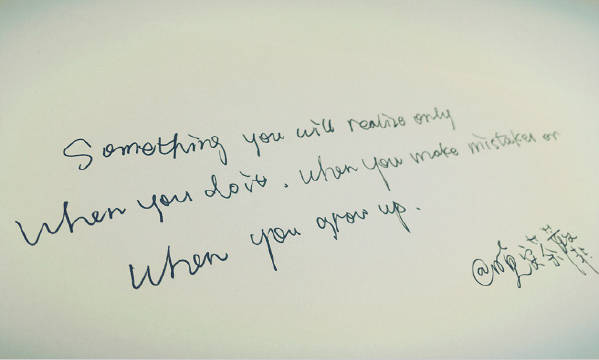 Something you will realize only
when you do it. when you make mistakes or
when you grow up.